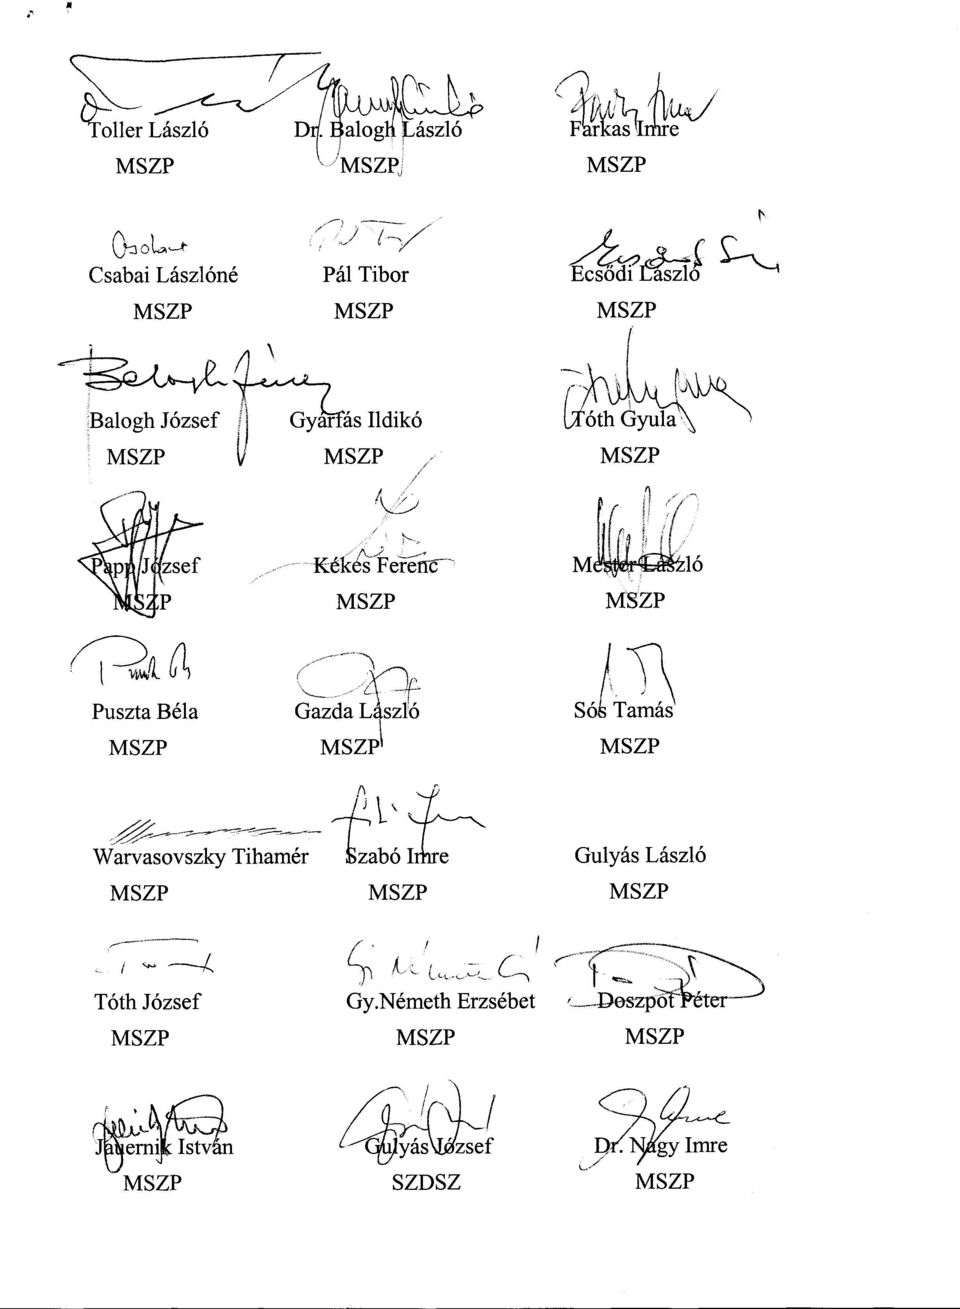 Toller László Dr. Balogh László Farkas Imre
MSZP MSZP MSZP
Csabai Lászlóné Pál Tibor Ecsődi László
MSZP MSZP MSZP
Balogh József Gyárfás Ildikó Tóth Gyula
MSZP MSZP MSZP
Papp József Kékes Ferenc Mester László
MSZP MSZP MSZP
Puszta Béla Gazda László Sós Tamás
MSZP MSZP MSZP
Warvasovszky Tihamér Szabó Imre Gulyás László
MSZP MSZP MSZP
Tóth József Gy.Németh Erzsébet Doszpot Péter
MSZP MSZP MSZP
Jauernik István Gulyás József Dr. Nagy Imre
MSZP SZDSZ MSZP